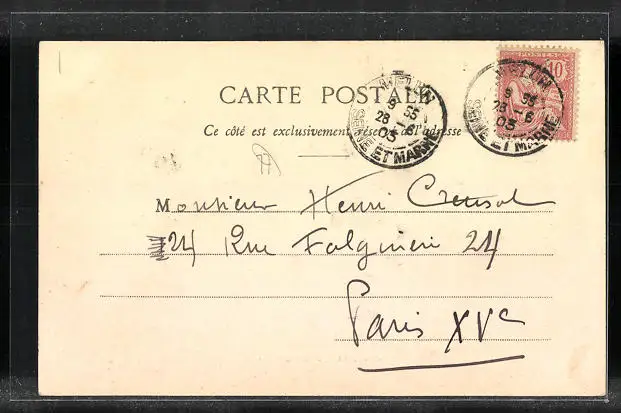 POSTES
10
MELUN
9 35
28 - 6
03
SEINE ET MARNE
MELUN
9 35
28 - 6
03
SEINE ET MARNE
CARTE POSTALE
Ce côté est exclusivement réservé à l'adresse
Monsieur Henri
24 Rue Falguière 24
Paris XVe